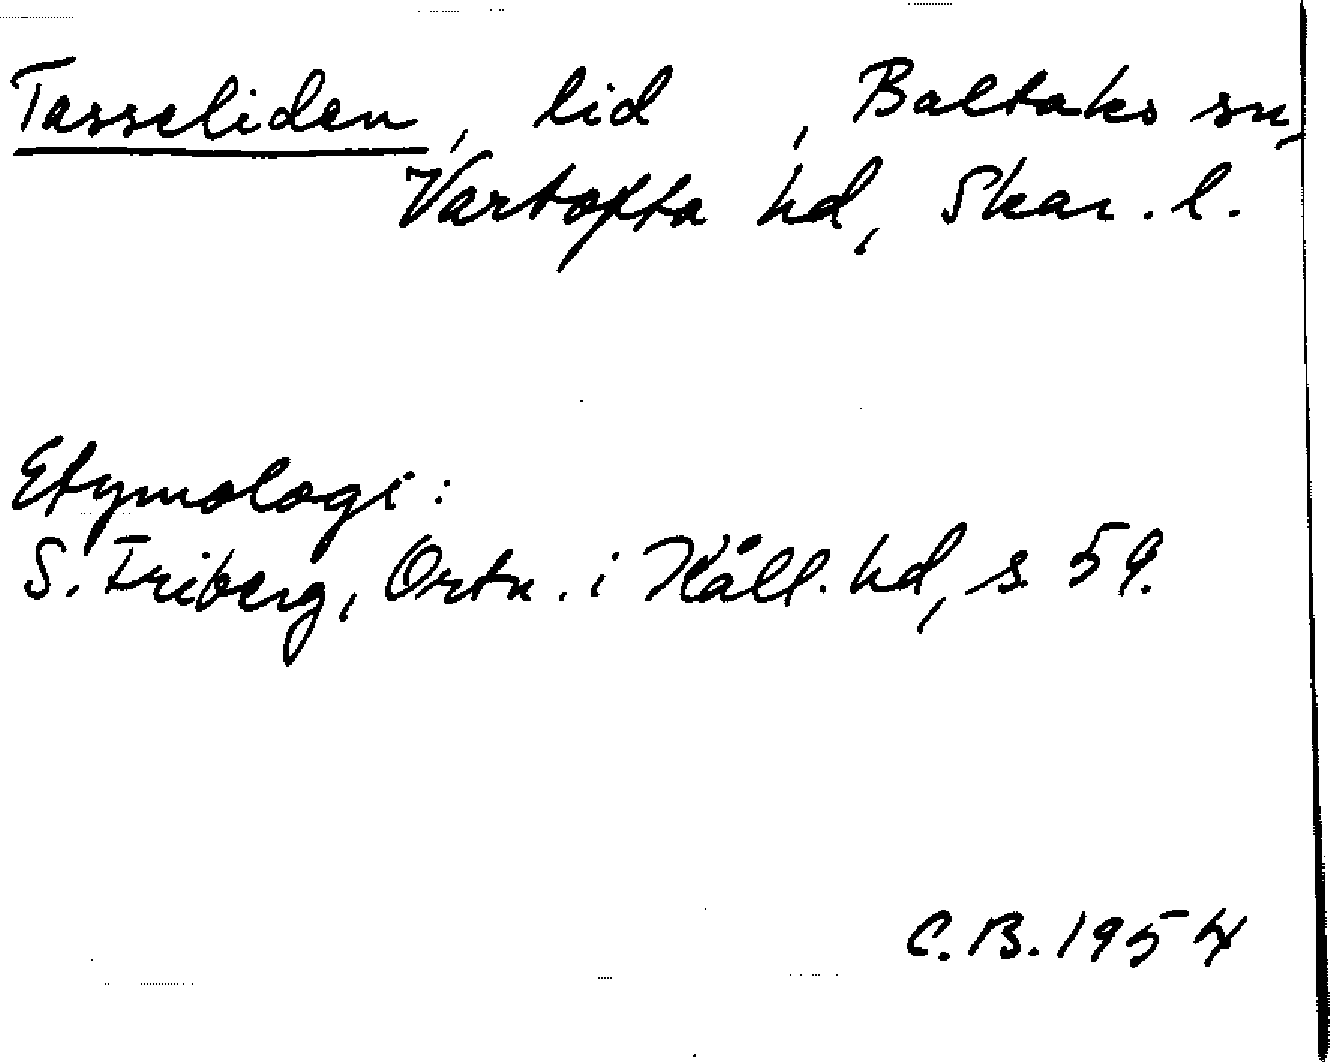 Tasseliden, lid , Baltaks sn,
Vartofta hd, Skar. l.
Etymologi:
S. Friberg, Ortn. i Kåll. hd, s 59.
C.B. 1954